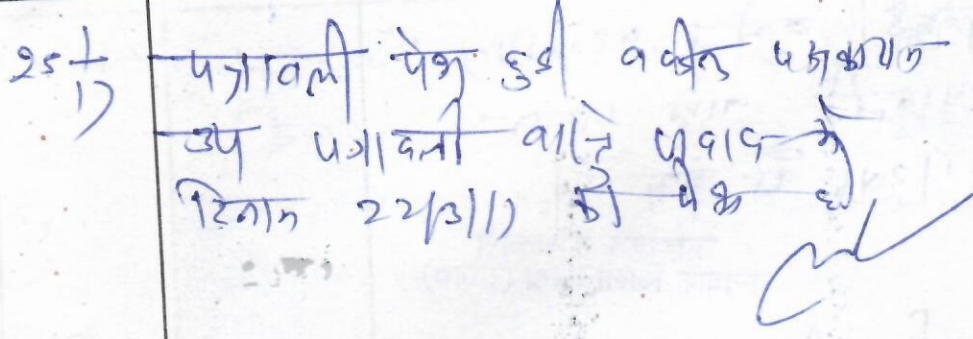 25/1/17 पत्रावली पेश हुई वकील पक्षकारान
उप पत्रावली वास्ते जवाब के
दिनांक 22/3/17 को पेश हो